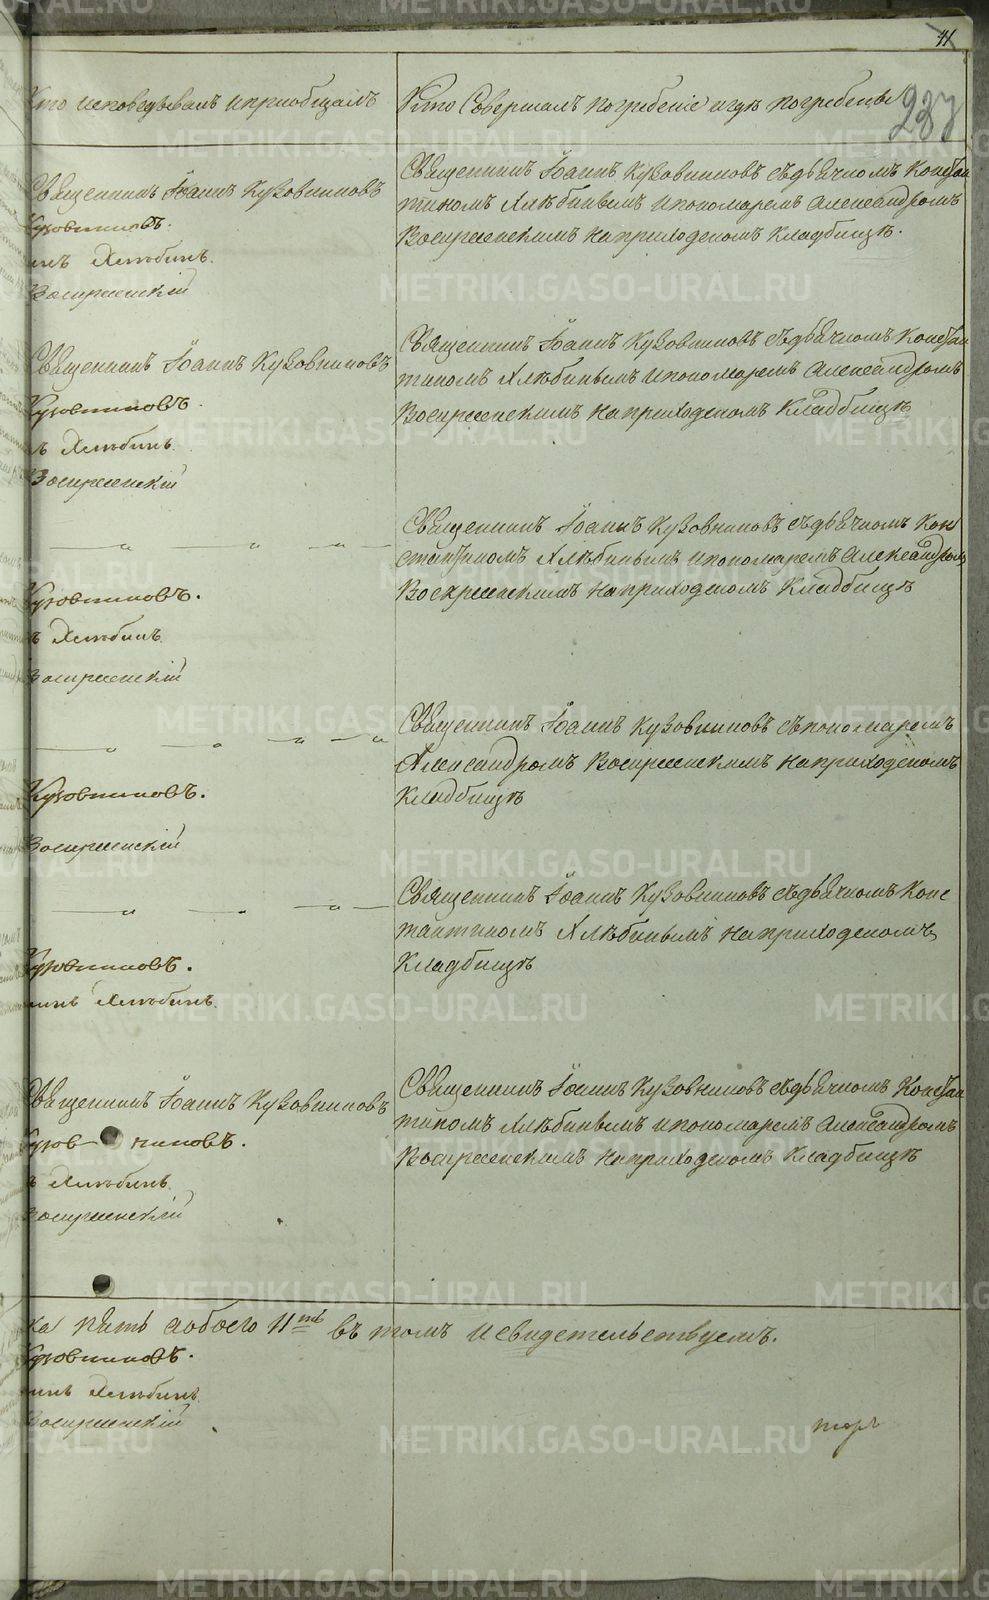 41
237
Кто исповедывалъ и приобщалъ
Кто Совершалъ погребеніе и гдѣ погребены
Священникъ Іоаннъ Кузовниковъ
Кузовниковъ.
Хлѣбинъ.
Воскресенскій
Священникъ Іоаннъ Кузовниковъ съ дьячкомъ Констан
тиномъ Хлѣбинымъ и пономаремъ Александромъ
Воскресенскимъ на приходскомъ кладбищѣ.
Священникъ Іоаннъ Кузовниковъ
Кузовниковъ.
ъ Хлѣбинъ.
Воскресенскій
Священникъ Іоаннъ Кузовниковъ съ дьячкомъ Констан
тиномъ Хлѣбинымъ и пономаремъ Александромъ
Воскресенскимъ на приходскомъ Кладбищѣ
— „ — „ — „ —
Кузовниковъ.
ъ Хлѣбинъ.
Воскресенскій
Священникъ Іоаннъ Кузовниковъ съ дьячкомъ Кон
стантиномъ Хлѣбинымъ и пономаремъ Александромъ
Воскресенскимъ на приходскомъ Кладбищѣ
— „ — „ — „ — „
Кузовниковъ.
Воскресенскій
Священникъ Іоаннъ Кузовниковъ съ пономаремъ
Александромъ Воскресенскимъ на приходскомъ
Кладбищѣ
— „ — „ — „ —
Кузовниковъ.
Хлѣбинъ.
Священникъ Іоаннъ Кузовниковъ съ дьячкомъ Конс
тантиномъ Хлѣбинымъ на приходскомъ
Кладбищѣ
Священникъ Іоаннъ Кузовниковъ
Кузов— никовъ.
ъ Хлѣбинъ.
Воскресенскій
Священникъ Іоаннъ Кузовниковъ съ дьячкомъ Констан
тиномъ Хлѣбинымъ и пономаремъ Александромъ
Воскресенскимъ на приходскомъ Кладбищѣ
ка пять а обоего 11ть въ томъ и свидетельствуемъ.
Кузовниковъ.
Хлѣбинъ.
Воскресенскій
METRIKI.GASO-URAL.RU